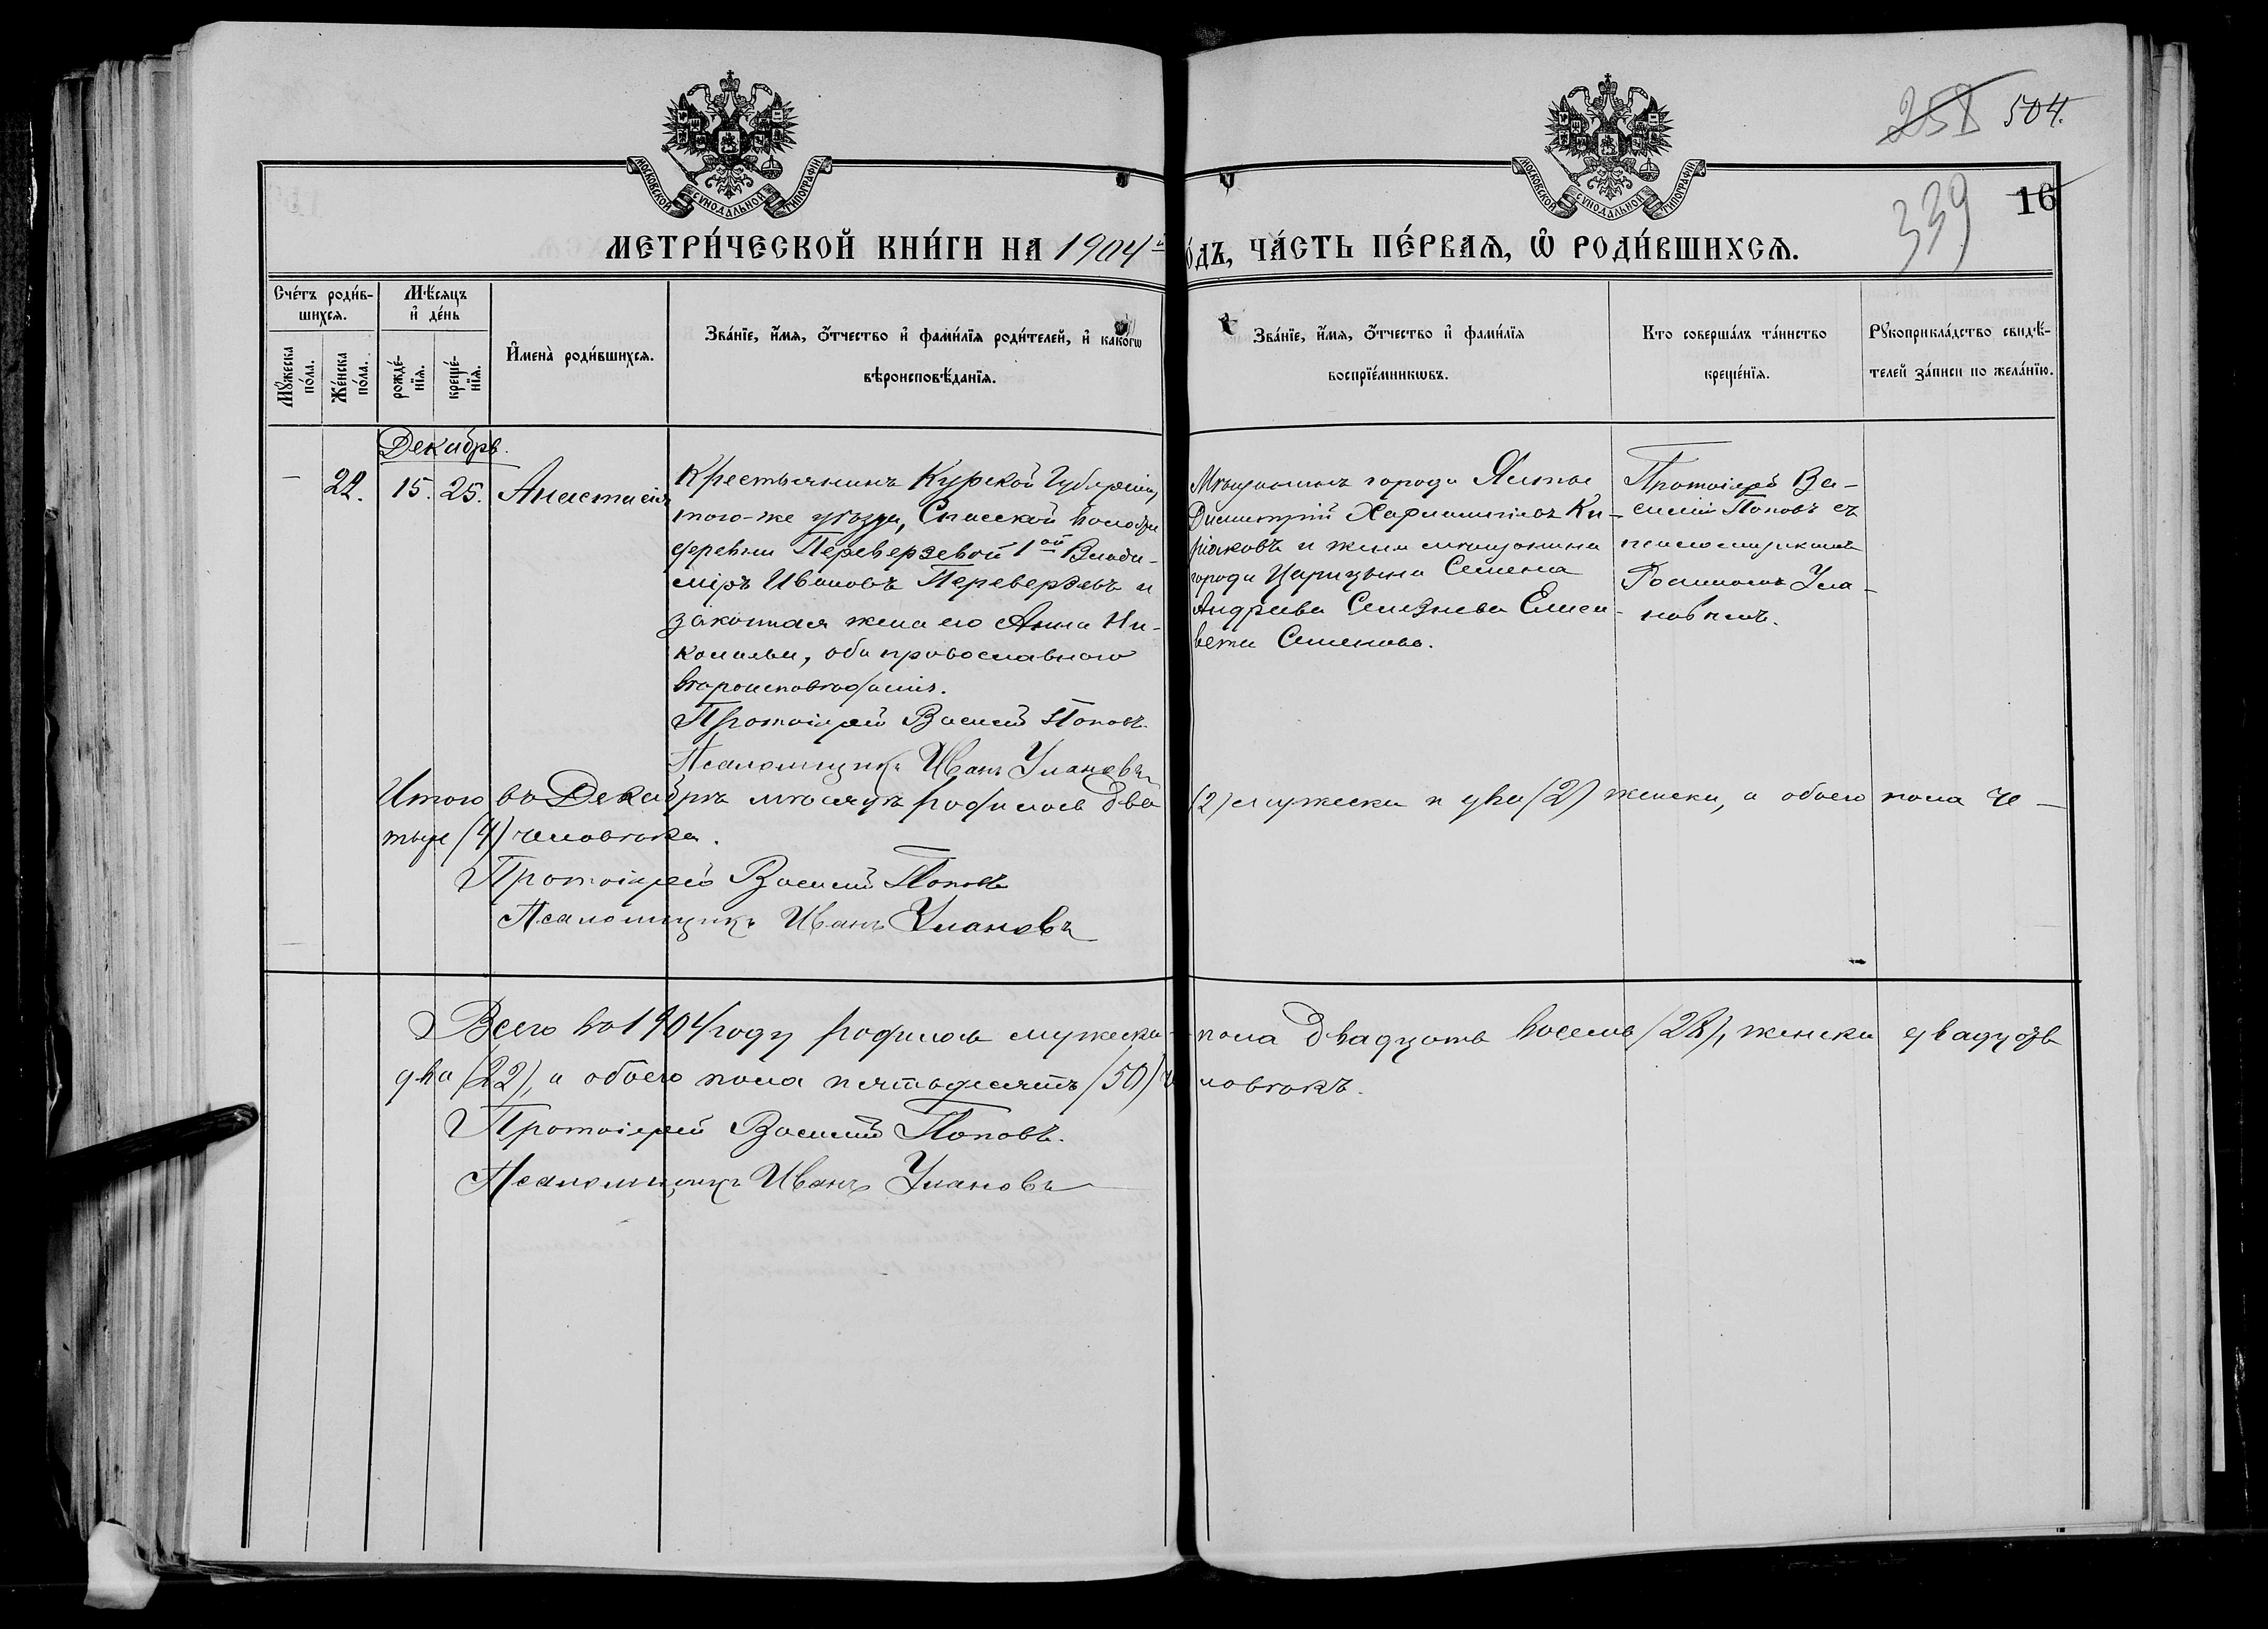 258 504.
339 16
МОСКОВСКОЙ СѴНОДАЛЬНОЙ ТИПОГРАФІИ
МОСКОВСКОЙ СѴНОДАЛЬНОЙ ТИПОГРАФІИ
МЕТРИ́ЧЕСКОЙ КНИ́ГИ НА 1904й
ОДЪ, ЧА́СТЬ ПЕ́РВАѦ, Ѽ РОДИ́ВШИХСѦ.
Сче́тъ роди́в-
шихсѧ.
Мѣ́сѧцъ
и҆ де́нь
Мꙋжеска по́ла.
Же́нска по́ла.
рожде́-
нїѧ.
креще́-
нїѧ.
И҆мена̀ роди́вшихсѧ.
Зва́нїе, и҆́мѧ, ѻ҆́тчество и҆ фами́лїѧ роди́телей, и҆ како́гѡ
вѣроисповѣ́данїѧ.
Зва́нїе, и҆́мѧ, ѻ҆́тчество и҆ фами́лїѧ
воспрїе́мникѡвъ.
Кто соверша́лъ та́инство
креще́нїѧ.
Рꙋкоприкла́дство свидѣ́-
телей за́писи по жела́нїю.
Декабрь.
— 22. 15. 25. Анастасія
Крестьянинъ Курской Губерніи,
того-же уѣзда, Спасской волости
деревни Переверзевой 1ой Влади-
міръ Ивановъ Переверзевъ и
законная жена его Анна Ни-
колаева, оба православнаго
вѣроисповѣданія.
Протоіерей Василій Поповъ
Псаломщикъ Иванъ Улановъ
Мѣщанинъ города Ялты
Димитрій Харлампіевъ Ки-
ріаковъ и жена мѣщанина
города Царицына Семена
Андреева Селезнева Елиса-
вета Семенова.
Протоіерей Ва-
силій Поповъ съ
псаломщикомъ
Іоанномъ Ула-
новымъ.
Итого въ Декабрѣ мѣсяцѣ родилось два (2) мужеска и два (2) женска, а обоего пола че-
тыре (4) человѣка.
Протоіерей Василій Поповъ
Псаломщикъ Иванъ Улановъ
Всего въ 1904 году родилось мужеска пола двадцать восемь (28), женска двадцать
два (22), а обоего пола пятьдесятъ (50) человѣкъ.
Протоіерей Василій Поповъ.
Псаломщикъ Иванъ Улановъ